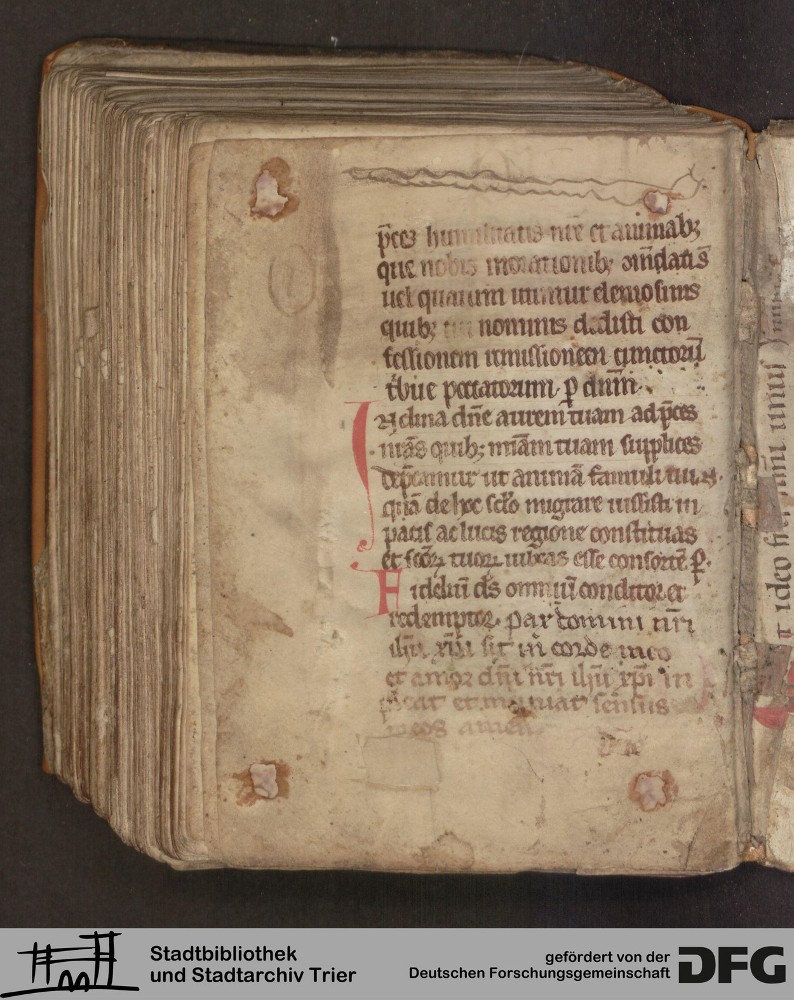 p̄ces humilitatis nr̄e et animab;
que nobis                     om̄datis
uel quarum utimur elemosinis
quib; tui nominis dedisti con
fessionem remissionem cunctorū
tbue peccatorum p dnm̄
Inclina dn̄e aurem tuam ad p̄ces
nr̄as quib; miām tuam supplices
dep̄camur ut animā famuli tui
quā de hoc sclo migrare iussisti in
pacis ac lucis regione constituas
et scōꝝ tuoꝝ iubeas esse consortē p.
Fidelium ds̄ omniū conditor et
redemptor. pax domini nr̄i
ihū xp̄i sit in corde meo
et amor dn̄i nr̄i ihū xp̄i in
               et moueat sensus
meos amen
ideo
Stadtbibliothek
und Stadtarchiv Trier
gefördert von der
Deutschen Forschungsgemeinschaft
DFG